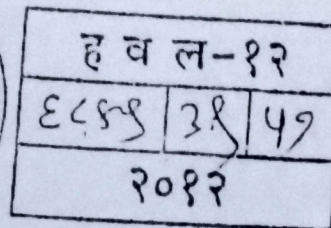 ह व ल-१२
६८५९ ३९ ५७
२०१२